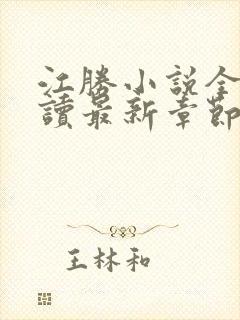 江勝小說全
讀最新章節
王林和